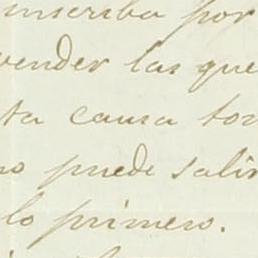 inscriba por
vender las que
ta causa tor
no puede salir
lo primero.